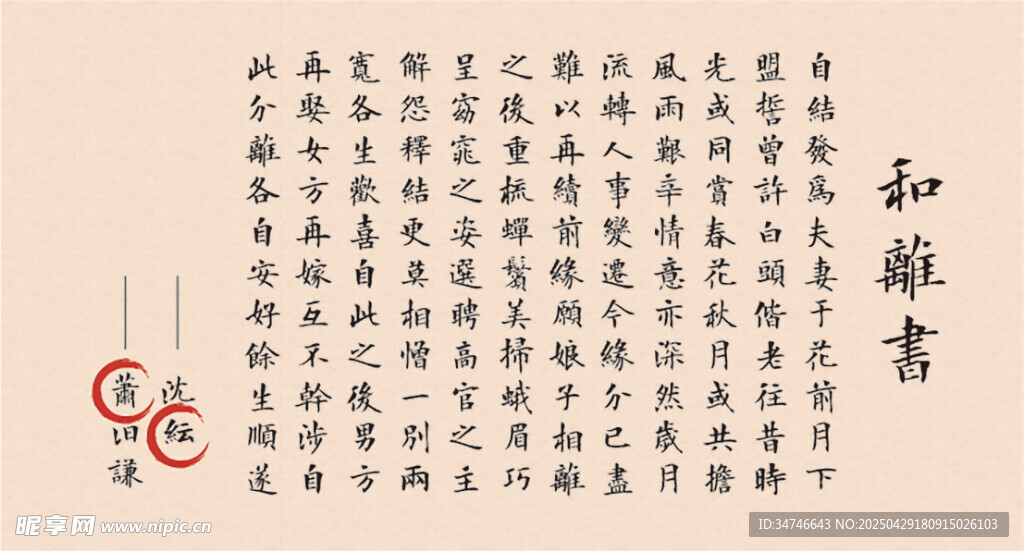 和離書
自結發爲夫妻于花前月下
盟誓曾許白頭偕老往昔時
光或同賞春花秋月或共擔
風雨艱辛情意亦深然歲月
流轉人事變遷今緣分已盡
難以再續前緣願娘子相離
之後重梳蟬鬢美掃蛾眉巧
呈窈窕之姿選聘高官之主
解怨釋結更莫相憎一別兩
寬各生歡喜自此之後男方
再娶女方再嫁互不幹涉自
此分離各自安好餘生順遂
沈紜
蕭汩謙
昵享网 www.nipic.cn
ID:34746643 NO:20250429180915026103